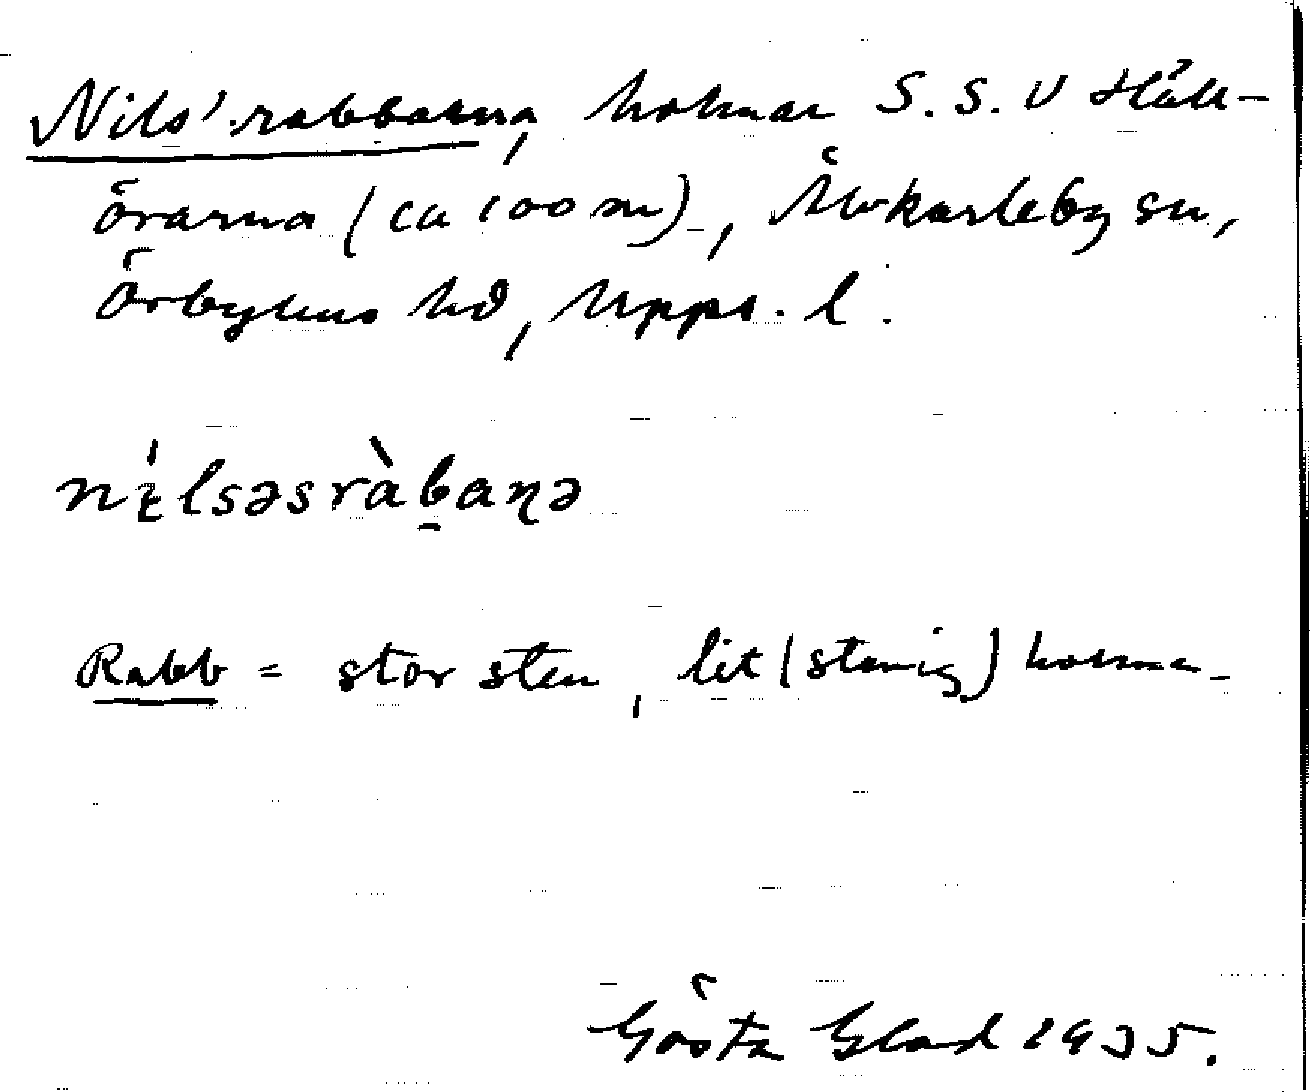 Nils'-rabbarna, holmar S.S.V Häll-
örarna (ca 100 m), Älvkarleby sn,
Örbyhus hd, Upps. l.
nı̵́lsəsràb̠aꞃə
Rabb = stor sten, lit (stenig) holme.
Gösta Glad 1935.